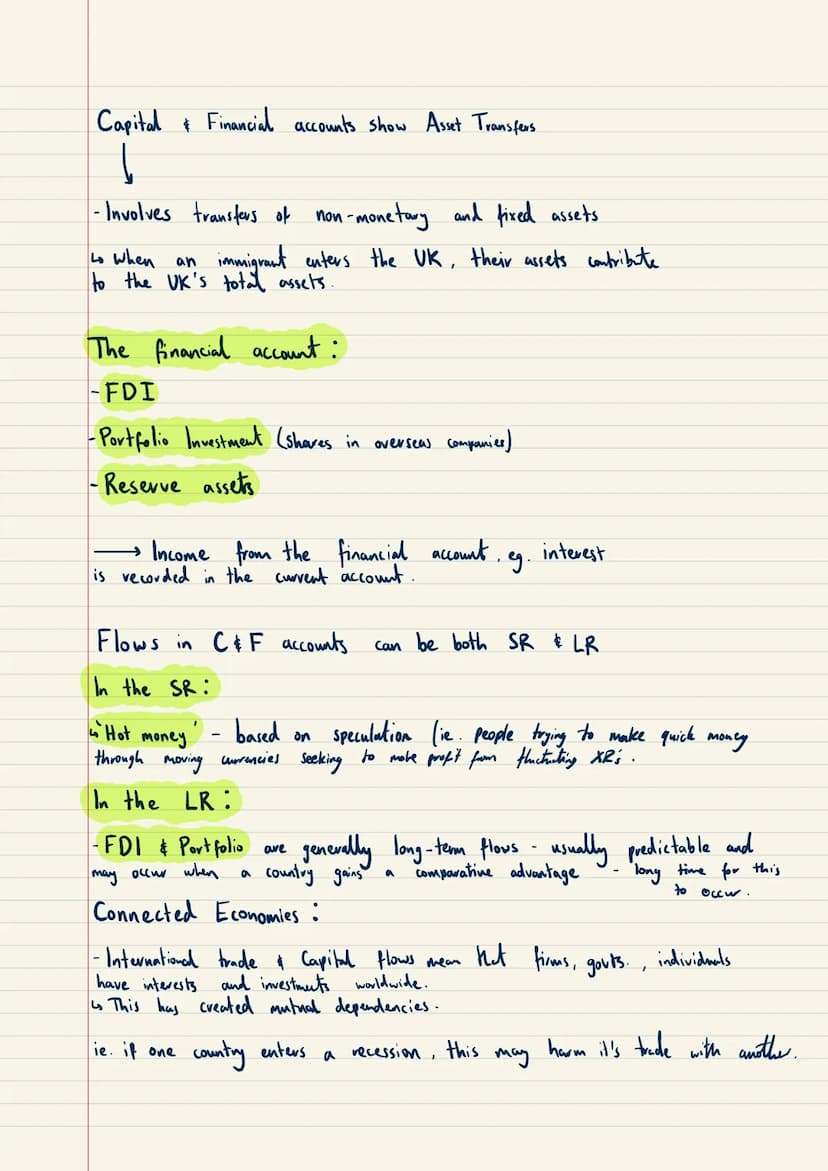 Capital & Financial accounts show Asset Transfers
- Involves transfers of non-monetary and fixed assets
↳ When an immigrant enters the UK, their assets contribute
to the UK's total assets.
The financial account:
- FDI
- Portfolio Investment (shares in overseas companies)
- Reserve assets
⟶ Income from the financial account, eg. interest
is recorded in the current account.
Flows in C & F accounts can be both SR & LR
In the SR:
↳ 'Hot money' - based on speculation (ie. people trying to make quick money
through moving currencies seeking to make profit from fluctuating XR's.
In the LR:
- FDI & Portfolio are generally long-term flows - usually predictable and
may occur when a country gains a comparative advantage - long time for this
to occur.
Connected Economies:
- International trade & Capital flows mean that firms, govts., individuals
have interests and investments worldwide.
↳ This has created mutual dependencies.
ie. if one country enters a recession, this may harm it's trade with another.